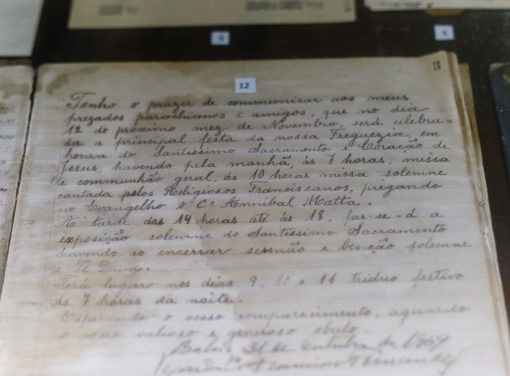 3
12
Tenho o prazer de communicar aos meus
prezados parochianos e amigos, que no dia
12 do proximo mez de Novembro, será celebra-
da a principal festa da nossa Freguezia, em
honra do Santissimo Sacramento e Coração de
Jesus, havendo pela manhã, ás 7 horas, missa
de communhão geral, ás 10 horas missa solemne
cantada pelos Religiosos Franciscanos, pregando
no Evangelho o Cº Annibal Matta.
A' tarde das 14 horas até ás 18, far-se-á a
exposição solemne do Santissimo Sacramento
havendo ao encerrar sermão e benção solemne
e Te Deum.
Terá lugar nos dias 9, 10 e 11 triduo festivo
ás 7 horas da noite.
Esperando o vosso comparecimento, aguardo
o vosso valioso e generoso obulo.
Bahia, 31 de Outubro de